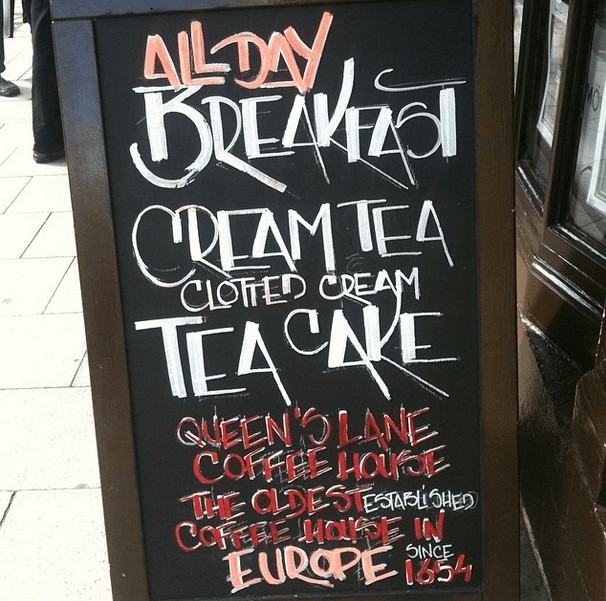 ALL DAY
BREAKFAST
CREAM TEA
CLOTTED CREAM
TEA CAKE
QUEEN'S LANE
COFFEE HOUSE
THE OLDEST ESTABLISHED
COFFEE HOUSE IN
EUROPE SINCE 1654